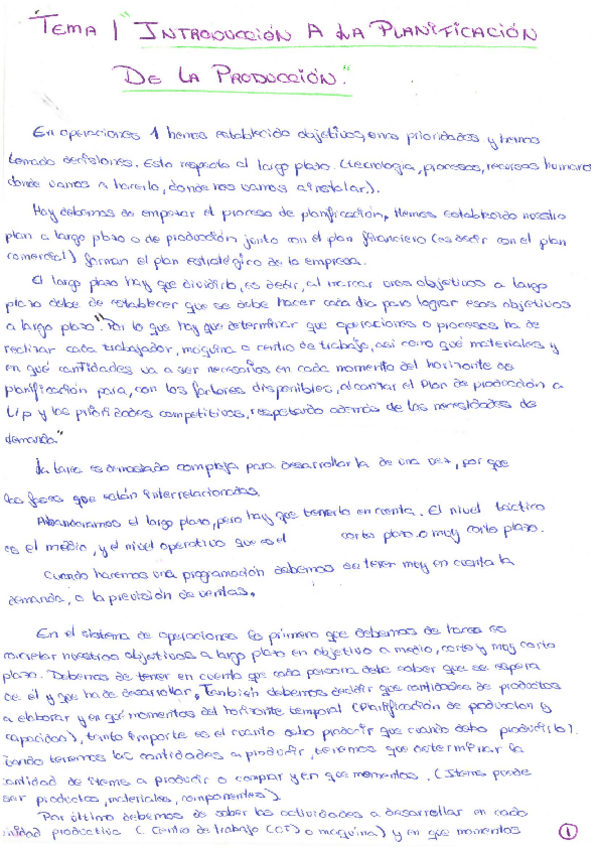 TEMA 1 "INTRODUCCIÓN A LA PLANIFICACIÓN
DE LA PRODUCCIÓN."
En operaciones 1 hemos establecido objetivos, prioridades y hemos
tomado decisiones. Esto respecto al largo plazo. (tecnología, procesos, recursos humanos
donde vamos a hacerlo, donde nos vamos a instalar).
Hoy debemos de empezar el proceso de planificación. Hemos establecido nuestro
plan a largo plazo o de producción junto con el plan financiero (es decir con el plan
comercial) forman el plan estratégico de la empresa.
El largo plazo hay que dividirlo, es decir, al marcar unos objetivos a largo
plazo debe de establecer que se debe hacer cada día para lograr esos objetivos
a largo plazo. "Por lo que hay que determinar que operaciones o procesos ha de
realizar cada trabajador, máquina o centro de trabajo, así como qué materiales y
en qué cantidades va a ser necesarios en cada momento del horizonte de
planificación para, con los factores disponibles, alcanzar el Plan de producción a
L/p y las prioridades competitivas, respetando además de las necesidades de
demanda"
La tarea es demasiado compleja para desarrollarla de una vez, por que
las fases que están interrelacionadas
Abandonamos el largo plazo, pero hay que tenerlo en cuenta. El nivel táctico
es el medio, y el nivel operativo que es el corto plazo o muy corto plazo.
Cuando haremos una programación debemos de tener muy en cuenta la
demanda, o la previsión de ventas.
En el sistema de operaciones lo primero que debemos de hacer es
concretar nuestros objetivos a largo plazo en objetivo a medio, corto y muy corto
plazo. Debemos de tener en cuenta que cada persona debe saber que se espera
de él y que ha de desarrollar. También debemos decidir que cantidades de productos
a elaborar y en qué momentos del horizonte temporal (Planificación de produccion y
capacidad), tanto importa es el cuanto debo producir que cuando debo producirlo).
Cuando tenemos las cantidades a producir, tenemos que determinar la
cantidad de items a producir o comprar y en que momentos. (Items puede
ser productos, materiales, componentes).
Por último debemos de saber las actividades a desarrollar en cada
unidad productiva (Centro de trabajo (CT) o máquina) y en que momentos
1